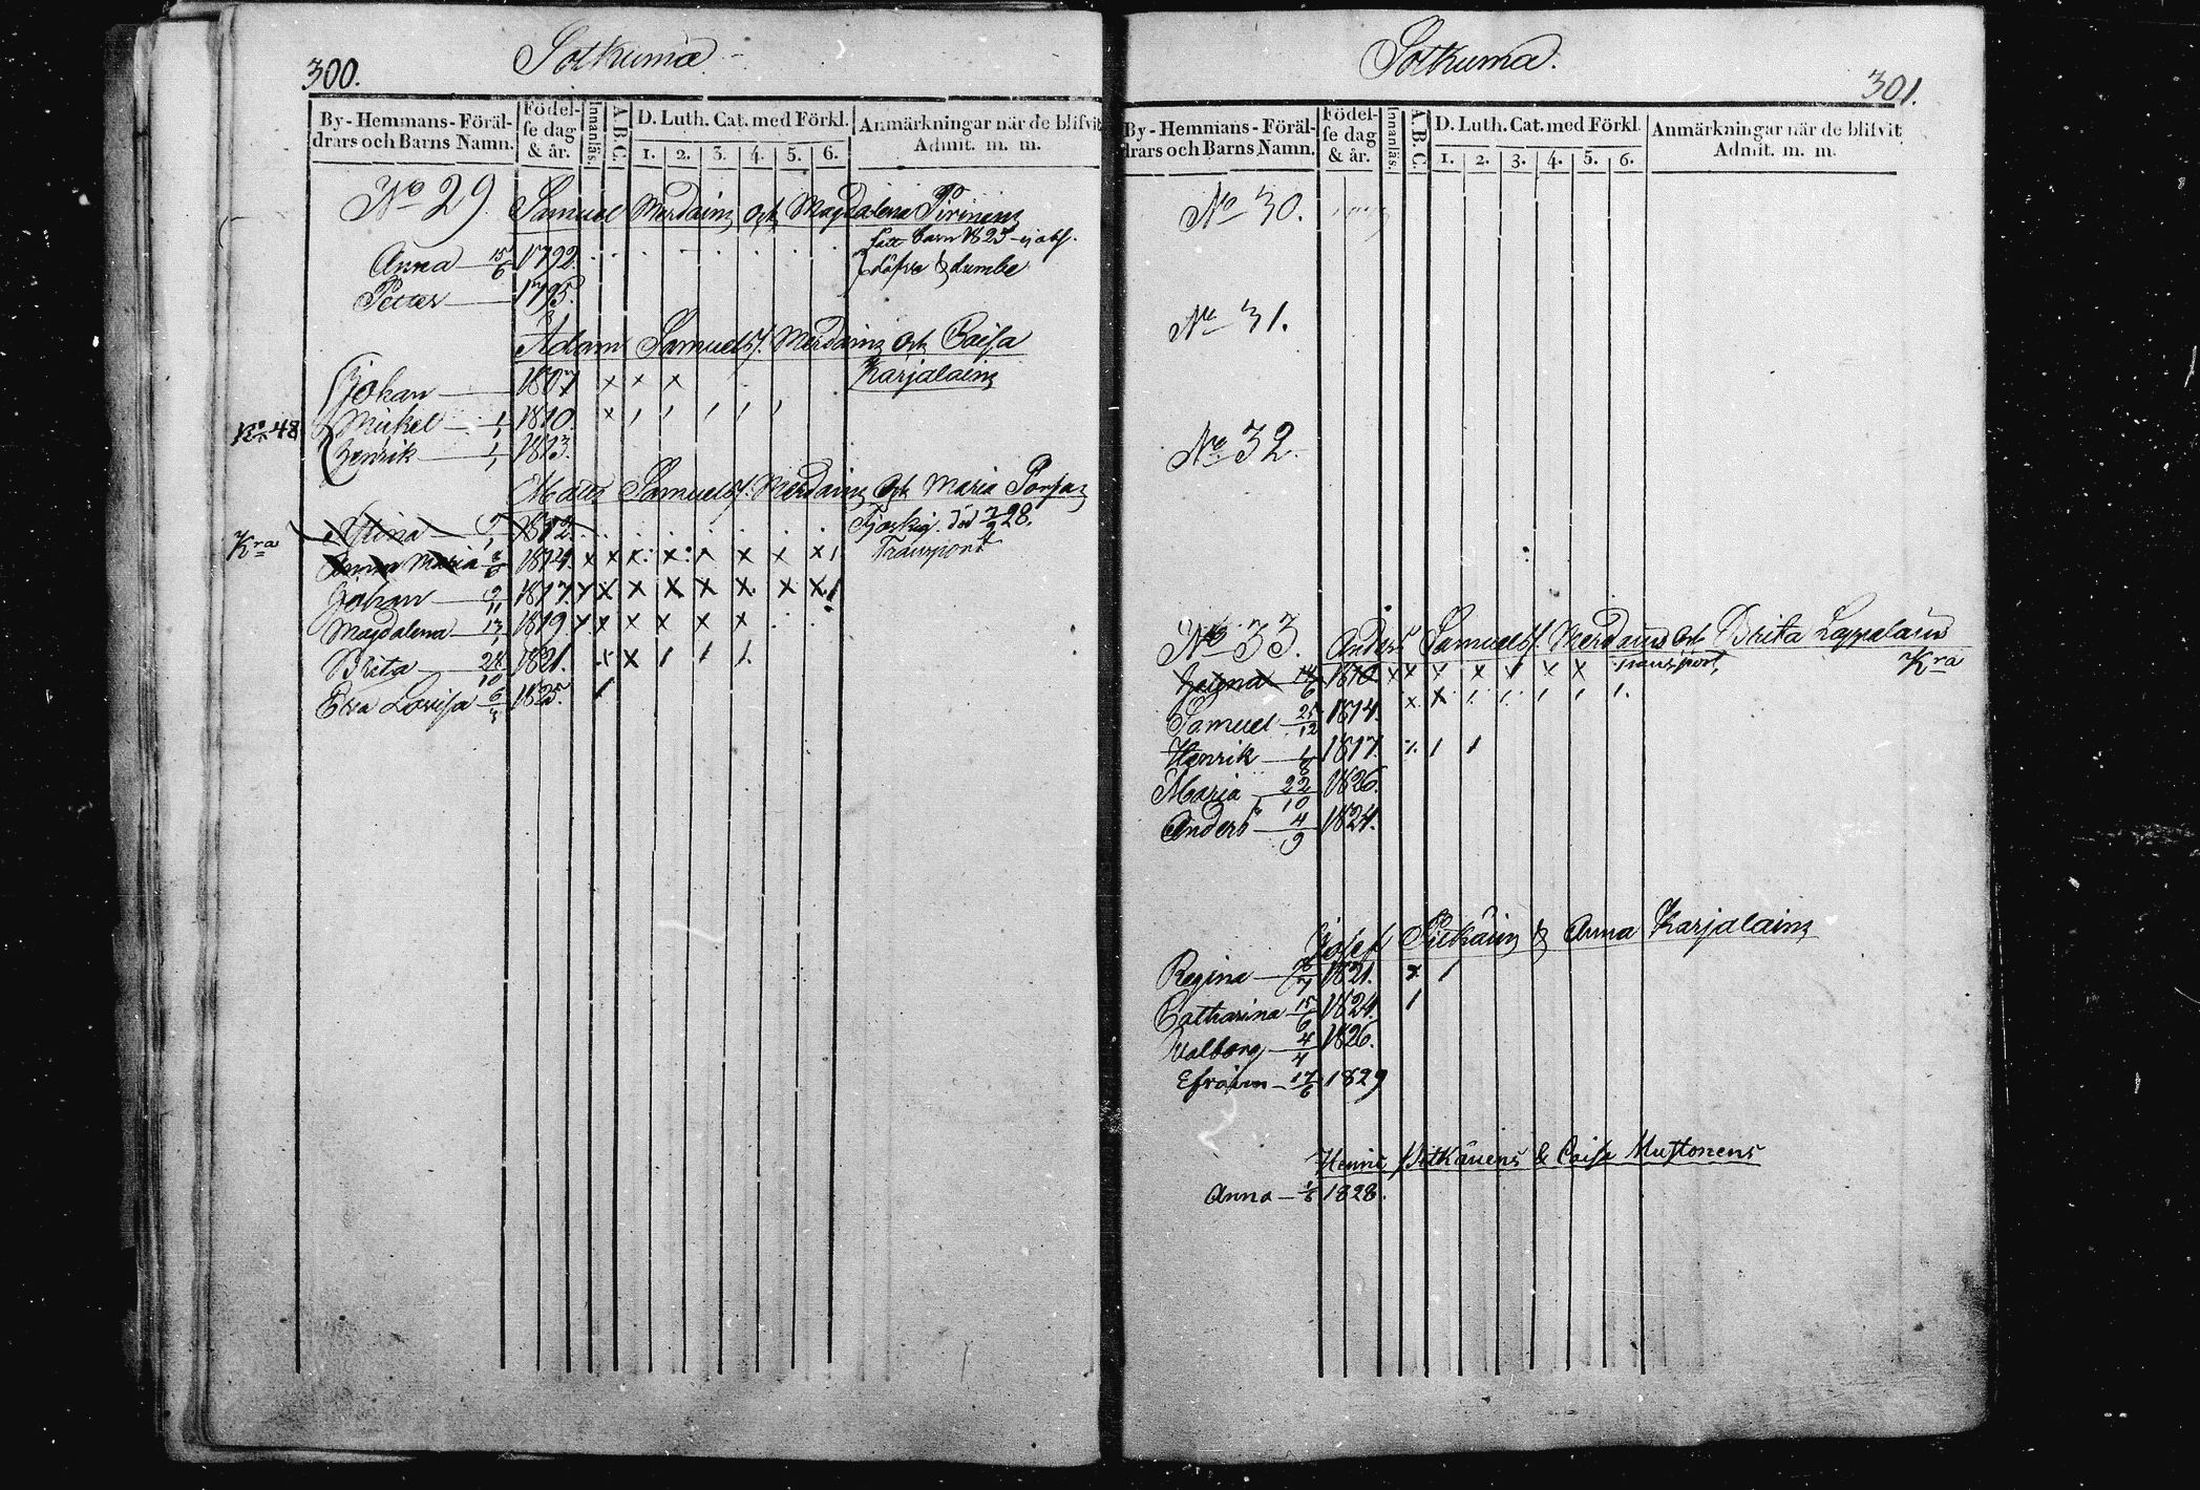 300.
Sotkuma
By-Hemmans-Föräl-
drars och Barns Namn.
Födel-
se dag
& år.
Innanläs.
A. B. C.
D. Luth. Cat. med Förkl.
1. 2. 3. 4. 5. 6.
Anmärkningar när de blifvit
Admit. m. m.
No 29. Samuel Merdainz och Magdalena Pirinens
fått barn 1825
Anna 15/6 1792. döfve & dumbe
Petter 1795.
Adam Samuelss. Merdainz och Caisa
Karjalainz
Johan 1807 x x x
No 48
Mickel 1/1 1810. x
Henrik 1/1 1813.
Matts Samuelss. Merdainz och Maria
Stina 1812 död 28.
Kra
Anna Maria 1814. x x x x x x x x Transport
Johan 9/11 1817. x x x x x x x x
Magdalena 13/1 1819. x x x x x x
Brita 28/10 1821. x x 1 1 1
Eva Lovisa 6/3 1825. 1
Sotkuma.
301.
By-Hemmans-Föräl-
drars och Barns Namn.
Födel-
se dag
& år.
Innanläs.
A. B. C.
D. Luth. Cat. med Förkl.
1. 2. 3. 4. 5. 6.
Anmärkningar när de blifvit
Admit. m. m.
No 30.
No 31.
No 32.
No 33. Anders Samuelss. Merdains och Brita Lappalains
1810 x x x x x x x Transport, Kra
Samuel 25/12 1814. x x 1 1 1 1 1
Henrik 1/8 1817. 1 1
Maria 22/10 1826.
Anders 4/9 1824.
Josef Pitkäinz & Anna Karjalainz
Regina 1821. x 1
Catharina 15/6 1824. 1
Valborg 4/4 1826.
Efraim 17/6 1829
Henric Pitkänens & Caisa Mustonens
Anna 1828.